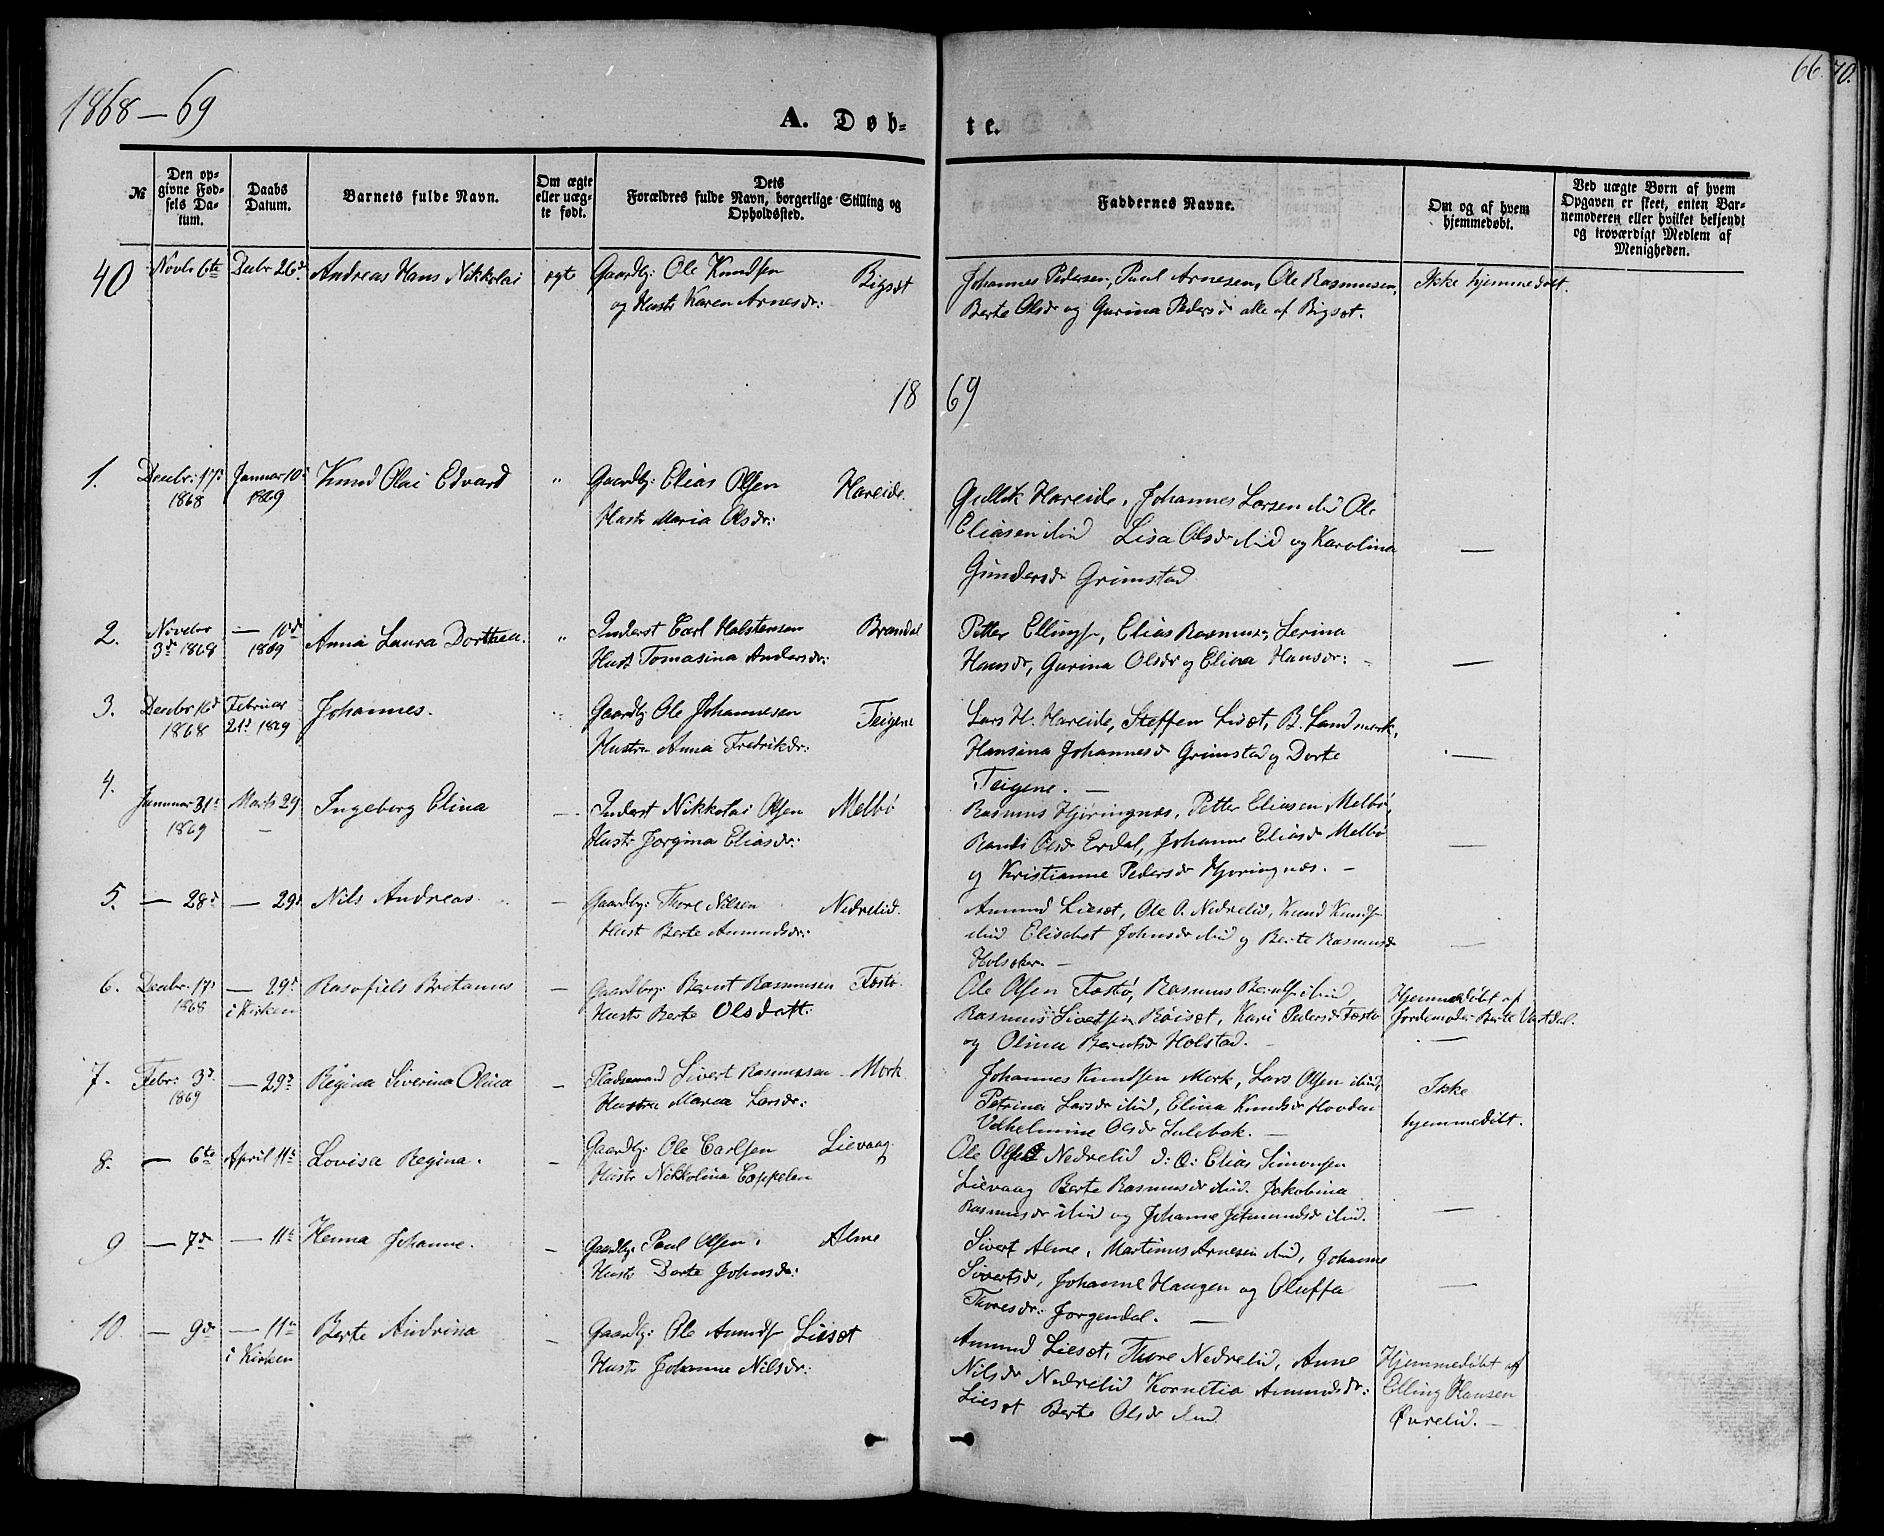 1868-69
A. Døb-
te.
66
70.
№
Den op-
givne Fød-
sels Da-
tum.
Daabs
Datum.
Barnets fulde Navn.
Om ægte
eller uæg-
te født.
Dets
Forældres fulde Navn, borgerlige Stilling og
Opholdssted.
Faddernes Navne.
Om og af hvem
hjemmedøbt.
Ved uægte Børn af hvem
Opgaven er skeet, enten Bar-
nemoderen eller hvilket bekjendt
og troværdigt Medlem af
Menigheden.
40 Novbr 6te Decbr 26d Andreas Hans Nikkolai ægte Gaardbr: Ole Knudsen Bigsæt
og Hustr Karen Arnesdr:
Johannes Pedersen, Paul Arnesen, Ole Rasmusen, Ikke hjemmedøbt.
Berte Olsdr og Gurina Pedersdr alle af Bigsæt.
18 69
1. Decbr: 17d Januar 10d Knud Olai Edvard " Gaardbr: Elias Olsen Hareide.
1868 1869 Hustr Maria Olsdr:
Gullik Hareide, Johannes Larsen ibid Ole
Eliasen ibid Lisa Olsdr ibid og Karolina —
Gundersdr Grimstad
2. Novebr — 10de Anna Laura Dorthea. " Inderst Carl Halstensen Brandal
3d 1868 1869 Hustr Tomasina Andersdr:
Petter Ellingsen, Elias Rasmusen, Serina
Hansdr, Gurina Olsdr og Elina Hansdr: —
3. Decbr 16d Februar Johannes. " Gaardbr Ole Johannesen Teigene
1868 21d 1869 Hustru Anna Fredriksdr:
Lars H. Hareide, Steffen Lisæt, B. Landmark,
Hansina Johannesdr Grimstad og Dorte —
Teigene. —
4. Januar 31d Marts 29 Ingeborg Elina — Inderst Nikkolai Olsen Melbø
1869 — Hustr Jorgina Eliasdr:
Rasmus Hjøringnæs, Petter Eliasen Melbø,
Randi Olsdr Erdal, Johanne Eliasdr Melbø —
og Kristianne Pedersdr Hjøringnæs. —
5. — 28d — 29d Nils Andreas — Gaardbr: Thore Nilsen Nedrelid.
Hustr Berte Amundsdr:
Amund Liesæt, Ole O. Nedrelid, Knud Knuds
ibid Elisabet Johnsdr ibid og Berte Rasmusdr —
Holsøker. —
6. Decbr. 17d — 29d Rasofiels Britanus — Gaardbrg: Bernt Rasmusen Fæstø.
1868 i Kirken Hustr Berte Olsdatt:
Ole Olsen Fæstø, Rasmus Berntsen ibid, Hjemmedøbt af
Rasmus Sivertsen Røiset, Kari Pedersdr Fæstø Jordemoder Berte Vartdal.
og Olina Berntsdr Holstad. — —
7. Febr: 3d — 29d Regina Siverina Olina — Pladsemand Sivert Rasmussen Mork
1869 Hustru Maria Larsdr:
Johannes Knudsen Mork, Lars Olsen ibid, Ikke
Petrina Larsdr ibid, Elina Knudsdr Hovden hjemmedøbt.
Velhelmine Olsdr Sulebak. —
8. — 6te April 11d Lovisa Regina. — Gaardbr: Ole Carlsen Lievaag
Hustr Nikkolina Cappelen
Ole Olsen Nedrelid d: O: Elias Simonsen
Lievaag Berte Rasmusdr ibid. Jakobina
Rasmusdr ibid og Johanne Jetmundsdr ibid. —
9 — 7de — 11te Henna Johanne. — Gaardbr: Paul Olsen. Alme
Hustr Dorte Johnsdr:
Sivert Alme, Martinus Arnesen ibid, Johanne
Sivertsdr, Johanne Haugen og Oluffa —
Thoresdr: Jorgendal. —
10. — 9de — 11te Berte Andrina — Gaardbr: Ole Amunds Liesæt
i Kirken Hustr Johanne Nilsdr:
Amund Liesæt, Thore Nedrelid, Anne Hjemmedøbt af
Nilsdr Nedrelid Kornelia Amundsdr: Elling Hansen
Liesæt Berte Olsdr ibid Øvrelid. —